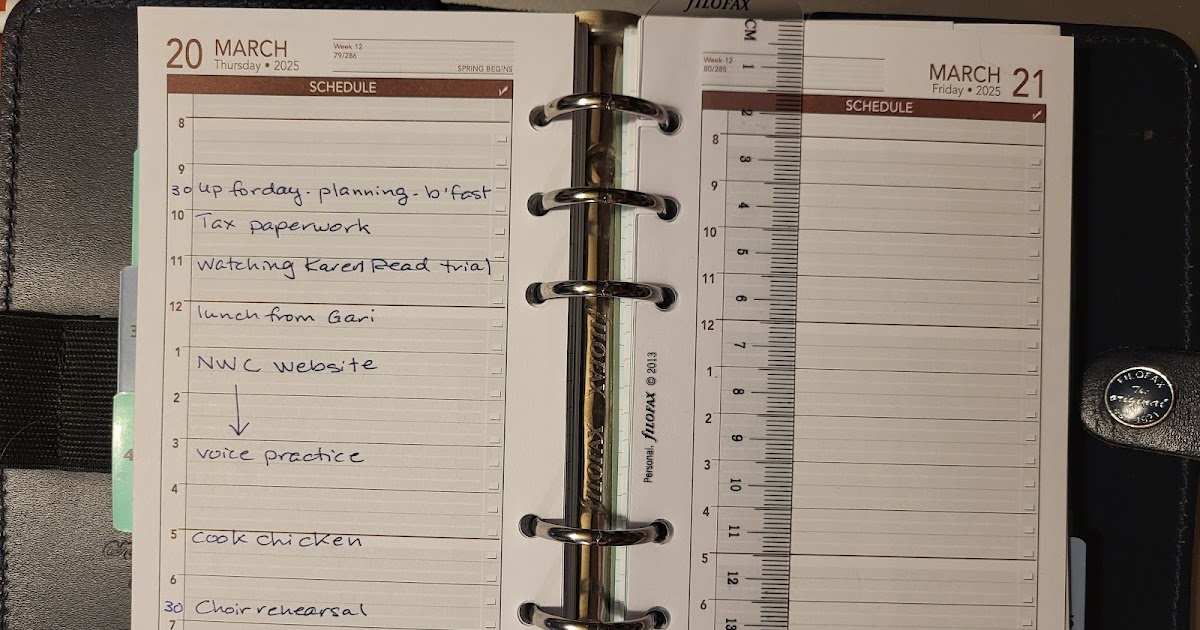 FILOFAX
20 MARCH
Thursday • 2025
Week 12
79/286
SPRING BEGINS
SCHEDULE ✓
8
9
30 up for day. planning - b'fast
10
Tax paperwork
11
watching Karen Read trial
12
lunch from Gari
1
NWC website
2
3
voice practice
4
5
cook chicken
6
30 Choir rehearsal
7
FILOFAX
FILOFAX
Personal. FILOFAX © 2013
CM
1
2
3
4
5
6
7
8
9
10
11
12
13
Week 12
80/285
MARCH 21
Friday • 2025
SCHEDULE ✓
8
9
10
11
12
1
2
3
4
5
6
FILOFAX
The
original
3
4